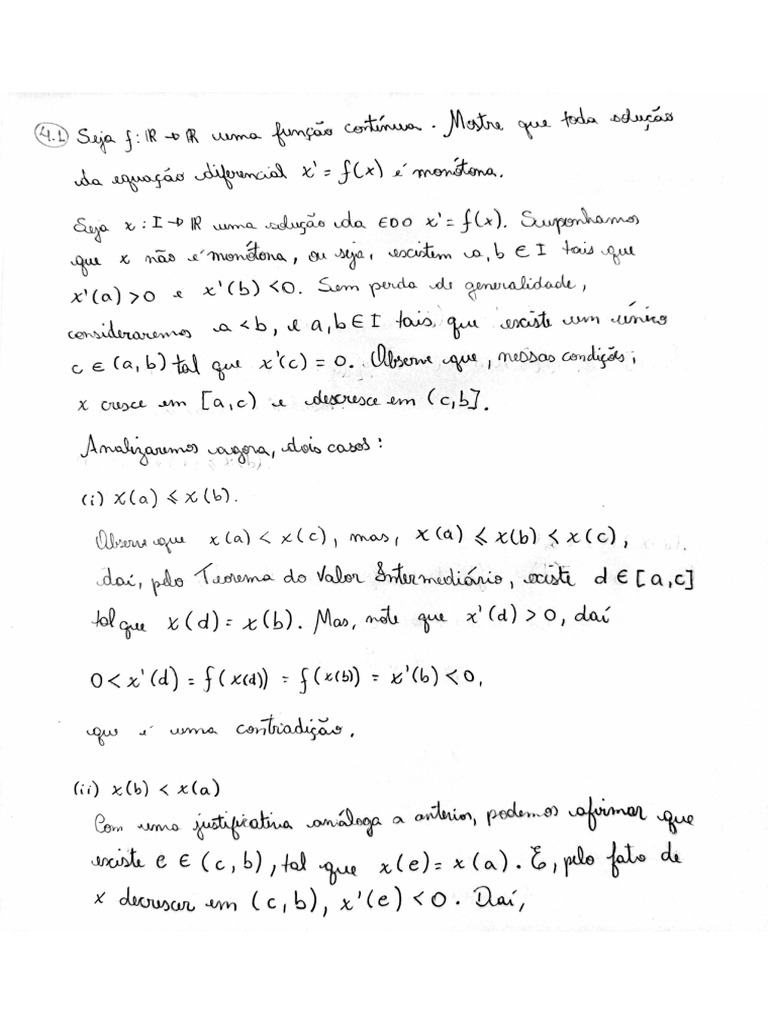 4.1 Seja f: ℝ → ℝ uma função contínua. Mostre que toda solução
da equação diferencial x' = f(x) é monótona.
Seja x : I → ℝ uma solução da EDO x' = f(x). Suponhamos
que x não é monótona, ou seja, existem a, b ∈ I tais que
x'(a) > 0 e x'(b) < 0. Sem perda de generalidade,
consideraremos a < b, e a, b ∈ I tais que existe um único
c ∈ (a, b) tal que x'(c) = 0. Observe que, nessas condições,
x cresce em [a, c) e descresce em (c, b].
Analizaremos agora, dois casos:
(i) x(a) ⩽ x(b).
Observe que x(a) < x(c), mas, x(a) ⩽ x(b) < x(c),
daí, pelo Teorema do Valor Intermediário, existe d ∈ [a, c]
tal que x(d) = x(b). Mas, note que x'(d) > 0, daí
0 < x'(d) = f(x(d)) = f(x(b)) = x'(b) < 0,
que é uma contradição.
(ii) x(b) < x(a)
Com uma justificativa análoga a anterior, podemos afirmar que
existe e ∈ (c, b), tal que x(e) = x(a). E, pelo fato de
x decrescer em (c, b), x'(e) < 0. Daí,